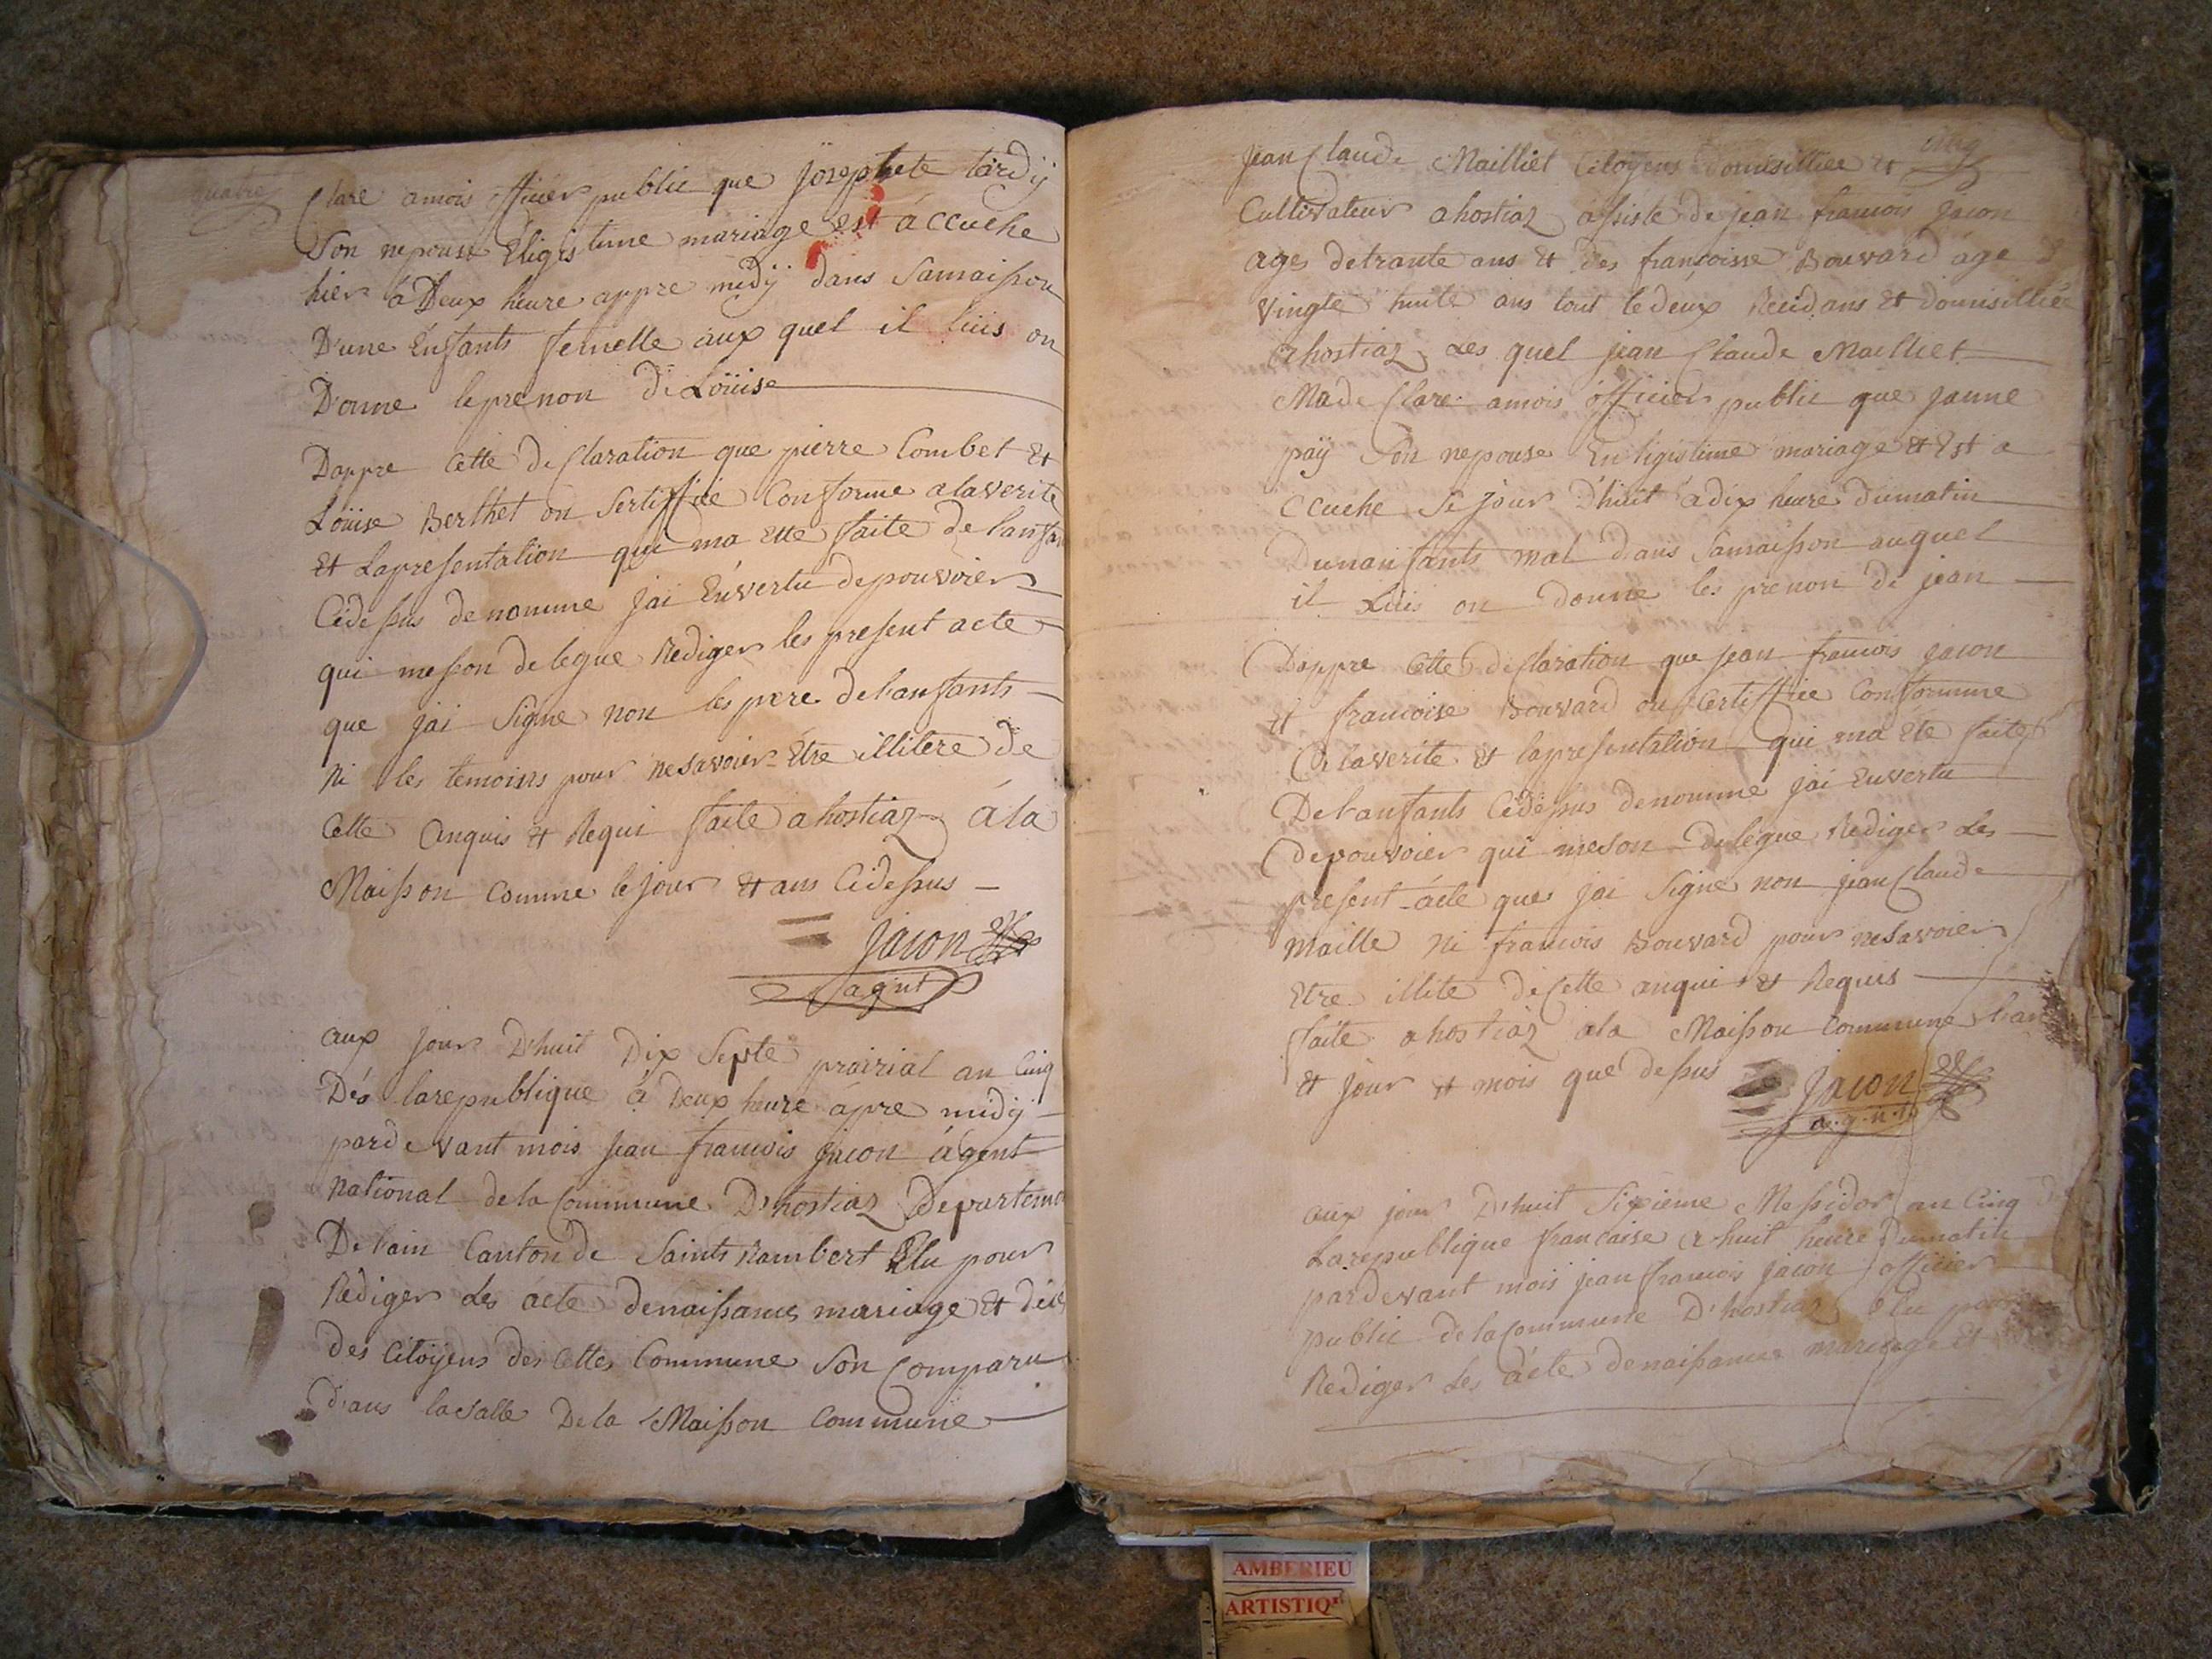 quatre
Clare amois officier public que Josephete tardij
Son nepouse Eligistime mariage est áccuche
hier á Deux heure appre midij dans Samaison
D'une Enfants femelle aux quel il luis on
Donne leprenon de Loüise
Dappre Cette declaration que pierre Combet Et
Loüise Berthet on Sertiffié Conforme alaverite
Et Lapresentation qui ma ette faite de lanfan
Cidessus denomme jai Envertu depouvoier
qui messon delegue Rediger les present acte
que jai Signe non les pere delanfants
Ni les temoins pour nesavoier Etre illitere de
Cette Anquis et Requi faite ahostiaz á la
Maison Comme le jour et ans Cidessus
Jacon
agnt
aux jour D'huit Dix Septe prairial an Cinq
Dés larepublique á Deux heure ápre midij
pardevant mois jean francois jacon ágent
National dela Commune D'hostiaz Departeme
De lain Canton de Saints Rambert Elu pour
Rediger Les acte denaissances mariage et décé
des Citoyens des Cettes Commune Son Comparu
dans lasalle De la Maison Commune
cinq
jean Claude Mailliet Citoyens domisilliee et
Cultivateur ahostiaz assiste de jean francois jacon
ages detrante ans et des francoisse Bouvard áge d
vingte huite ans tout ledeux Residans et domisilliée
Ahostiaz Les quel jean Claude Mailliet
Made Clare amois officier public que janne
paÿ Son nepouse En ligistime mariage et Est a
Ccuche Se jour D'huit a dix heure dumatin
Dunanfants mal dans Samaison auquel
il Luis on donne les prenon de jean
Dappre Cette declaration que jean francois jacon
et francoise Bouvard on Certiffiee Conformme
A laverite et lapresentation qui ma éte faite
De lanfants Cidessus denomme jai Envertu
depouvoier qui meson delegue Rediger Les
present ácte que jai Signe non jean Claude
Maille Ni francois Bouvard pour nesavoier
Etre illite de Cette anqui et Requis
faite ahostiaz ala Maison Commune lan
et jour et mois que dessus
Jacon
a.g.n.t
aux jour D'huit Sixieme Messidor an Cinq de
Larepublique francaise a huit heure Dumatin
pardevant mois jean francois jacon officier
public de la Commune D'hostiaz Elu pour
Rediger Les ácte denaissance mariage et
AMBERIEU
ARTISTIQ